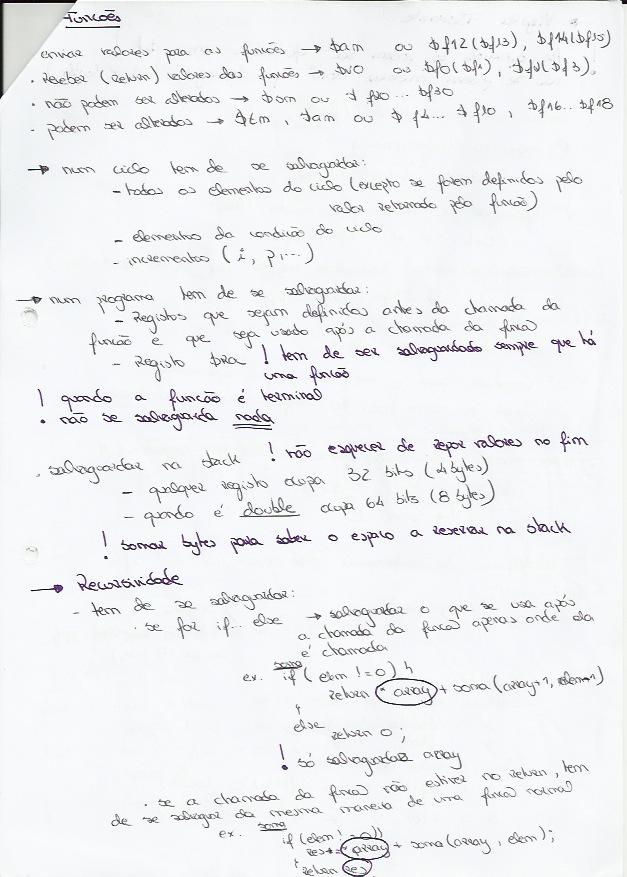 Funções
enviar valores para as funções → $am ou $f12($f13), $f14($f15)
· receber (return) valores das funções → $v0 ou $f0($f1), $f2($f3),
· não podem ser alterados → $sm ou $f20... $f30
- podem ser alterados → $tm, $am ou $f4... $f10, $f16... $f18
→ num ciclo tem de se salvaguardar:
- todos os elementos do ciclo (excepto se forem definidos pelo
valor retornado pelo função)
- elementos da condição do ciclo
- incrementos (i, p, ...)
→ num programa tem de se salvaguardar:
- Registos que sejam definidos antes da chamada da
função e que seja usado após a chamada da função
- Registo $ra ! tem de ser salvaguardado sempre que há
uma função
! quando a função é terminal
não se salvaguarda nada
. salvaguardar na stack ! não esquecer de repor valores no fim
- qualquer registo ocupa 32 bits (4 bytes)
- quando é double ocupa 64 bits (8 bytes)
! somar bytes para saber o espaço a reservar na stack
→ Recursividade
- tem de se salvaguardar:
· se for if... else → salvaguardar o que se usa após
a chamada da função apenas onde ela
é chamada
soma
ex. if (elem != 0) {
return *array + soma (array+1, elem-1)
}
else
return 0;
! só salvaguardar array
· se a chamada da função não estiver no return, tem
de se salvaguar da mesma maneira de uma função normal
soma
ex. if (elem != 0))
res += *array + soma (array, elem);
} return res